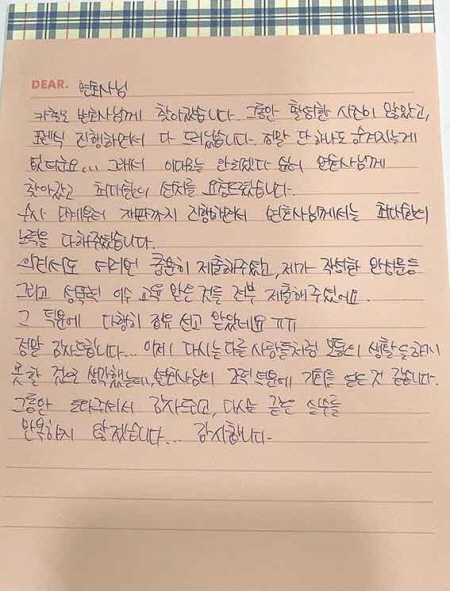 DEAR. 변호사님
가족도 변호사님께 찾아갔습니다. 그동안 촬영한 시간이 많았고,
포렌식 진행하면서 다 드러났습니다. 정말 단 하나도 숨겨지는게
없더군요... 그래서 이대로는 안되겠다 싶어 변호사님께
찾아갔고 최대한의 선처를 요청드렸습니다.
수사 단계부터 재판까지 진행하면서 변호사님께서는 최대한의
노력을 다해주셨습니다.
의견서도 여러번 충분히 제출해주셨고, 제가 작성한 반성문들
그리고 성폭력 이수 교육 받은 것들 전부 제출해주셨어요.
그 덕분에 다행히 집유 선고 받았네요 ㅠㅠ
정말 감사드립니다... 이제 다시는 다른 사람들처럼 보통의 생활을 하지
못할 것으로 생각했는데, 변호사님의 조력 덕분에 기회를 얻은 것 같습니다.
그동안 도와주셔서 감사드리고, 다시는 같은 실수를
반복하지 않겠습니다... 감사합니다.